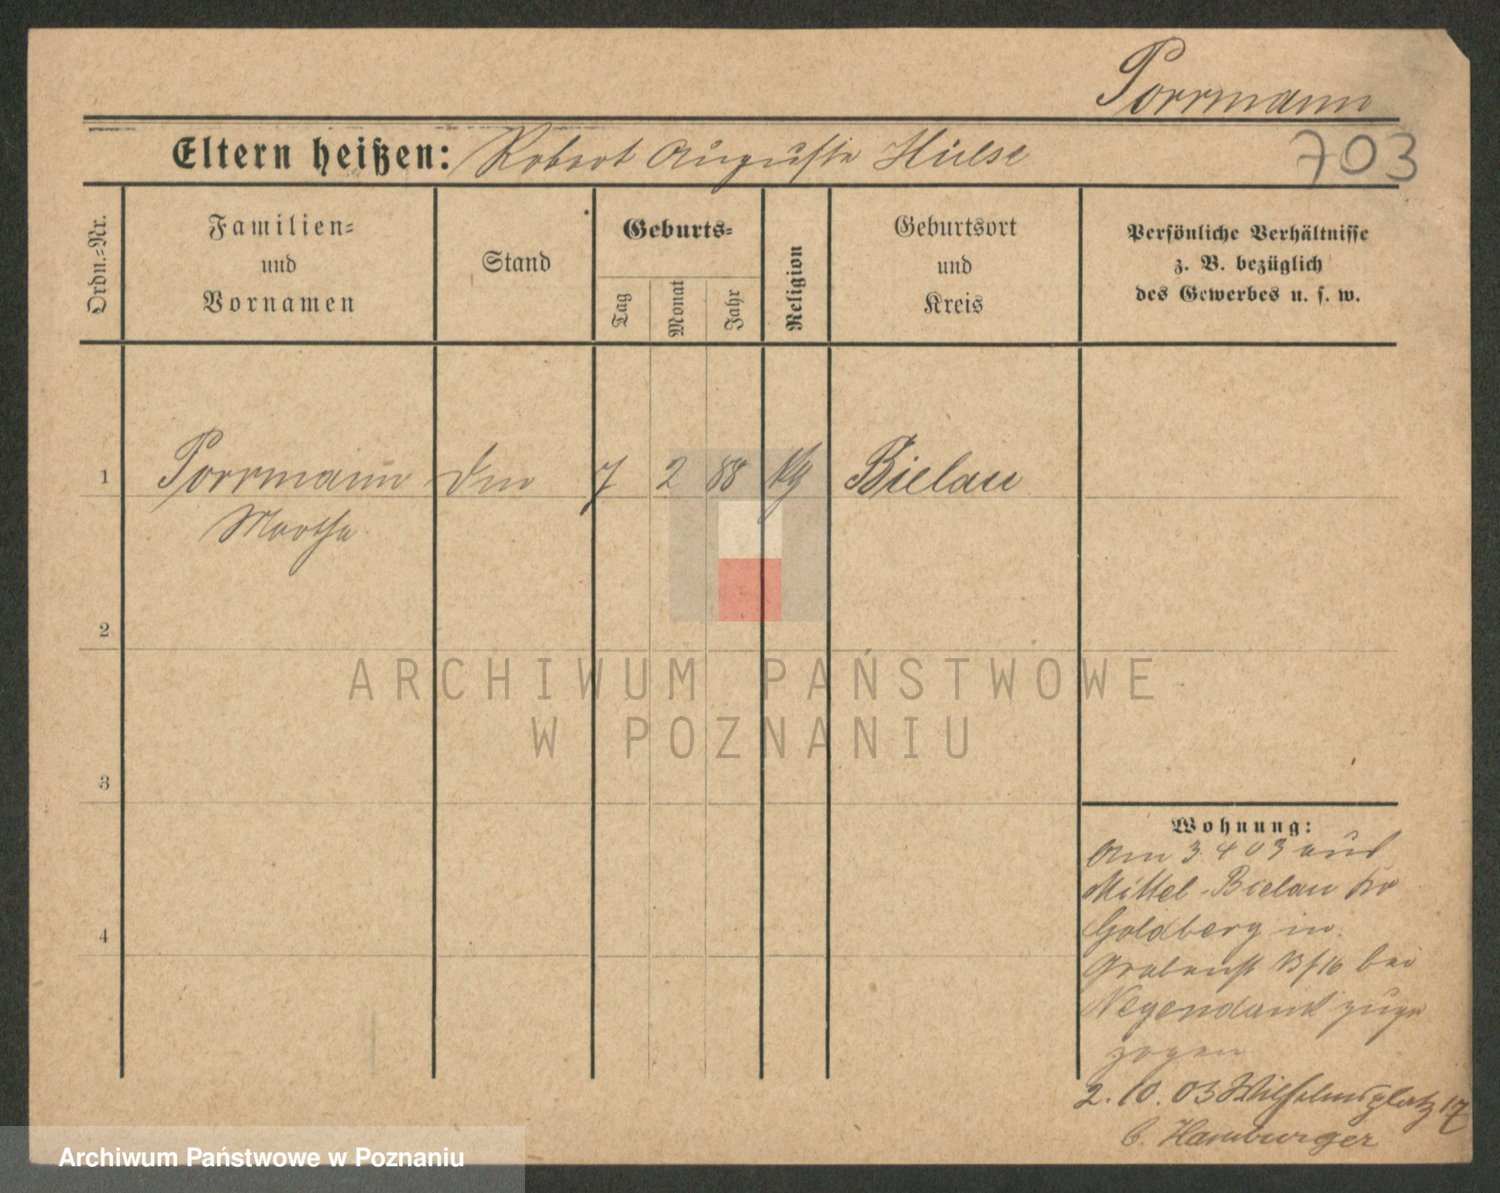 Porrmann
703
Eltern heißen: Robert Auguste Hülse
Ordn.-Nr.
Familien-
und
Vornamen
Stand
Geburts-
Tag
Monat
Jahr
Religion
Geburtsort
und
Kreis
Persönliche Verhältnisse
z. B. bezüglich
des Gewerbes u. s. w.
1 Porrmann 7 2 88 Bielau
Martha
2
3
4
Wohnung:
Am 3 4 03 aus
Mittel-Bielau Kr
Goldberg in
Grabenst 13/16 bei
Negendank zuge
zogen
2. 10. 03 Wilhelmsplatz 17
b. Hamburger
ARCHIWUM PAŃSTWOWE
W POZNANIU
Archiwum Państwowe w Poznaniu